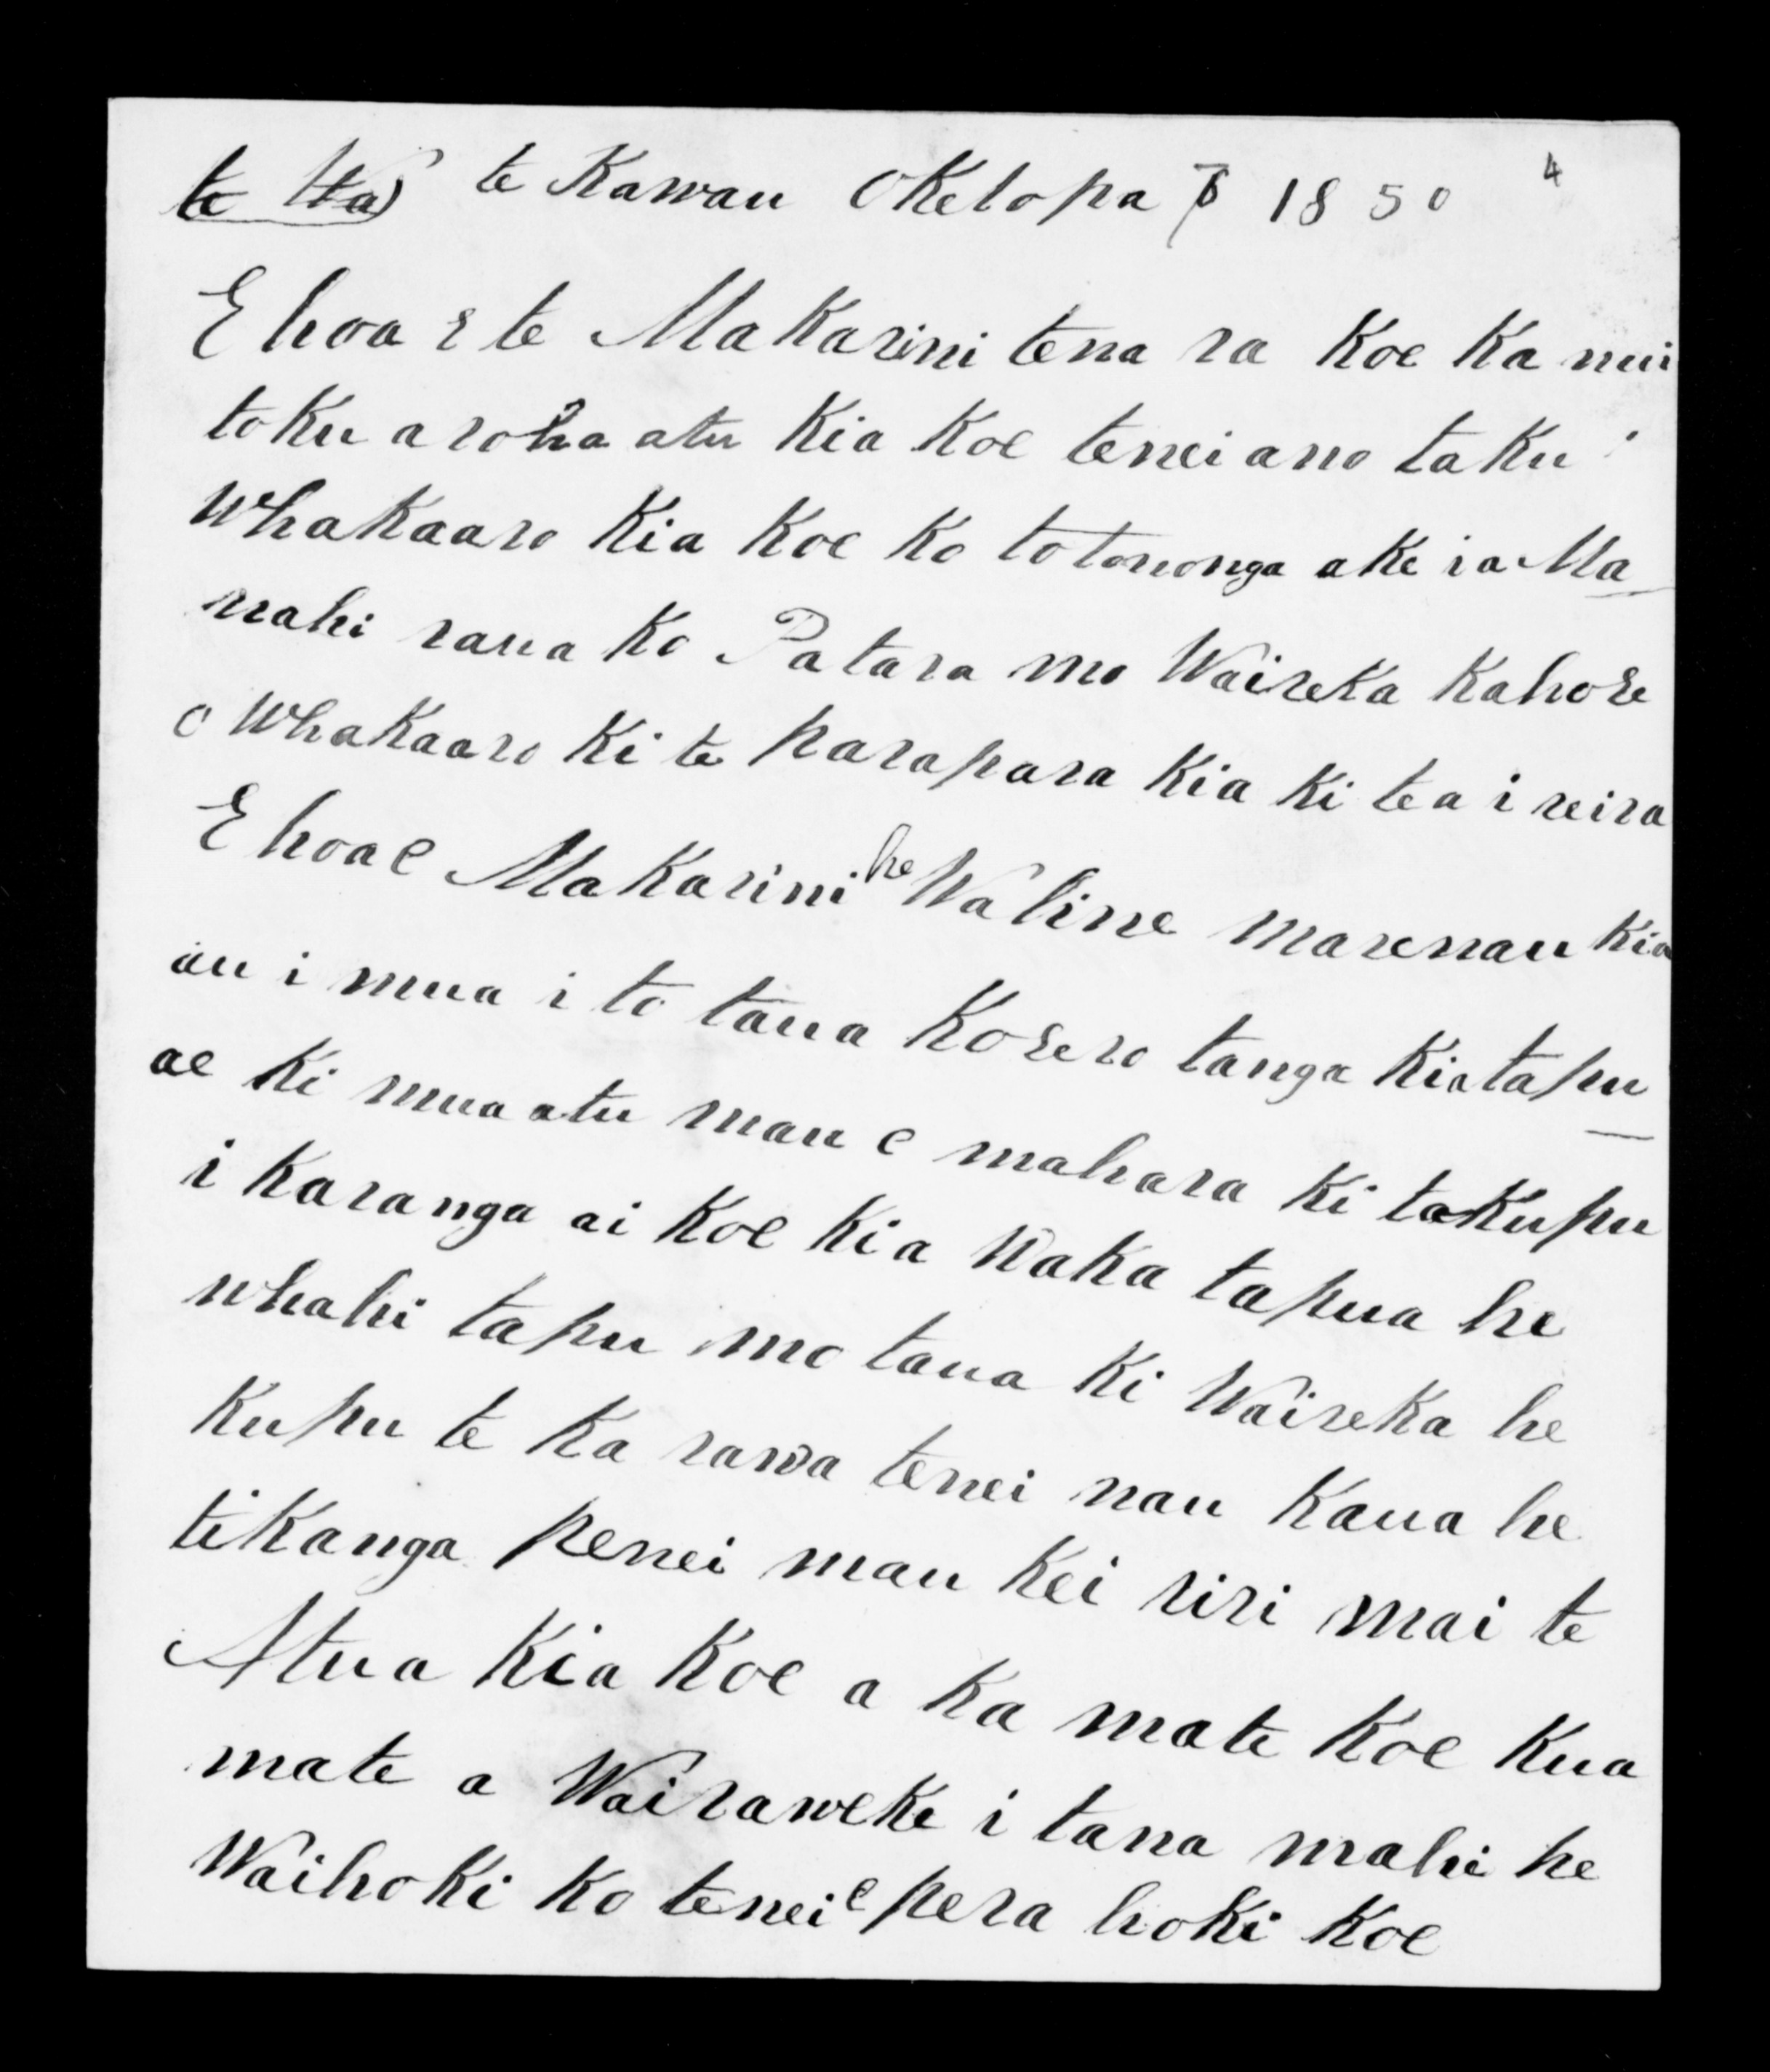 te Wa te Kawau Oketopa 1850 4
E hoa e te Makarini tena ra Koe Ka nui
toku aroha atu Kia Koe tenei ano taku
whakaaro Kia Koe Ko to tononga ake ia Ma
nahi raua Ko Patara mo Waireka Kahore
o whakaaro Ki te parapara Kia Kitea i reira
E hoa e Makarini he Watine marenau Kia
au i mua i to taua Korerotanga Kia tapu
ae Ki mua atu mau e mahara Ki takupu
i Karanga ai Koe Kia Waka tapua he
whahi tapu mo taua Ki Waireka he
Kupu te Ka rawa tenei nau Kaua he
tikanga penei mau Kei riri mai te
Atua Kia Koe a Ka mate Koe Kua
mate a Wairaweke i tana mahi he
Waihoki Ko tenei e pera hoki Koe